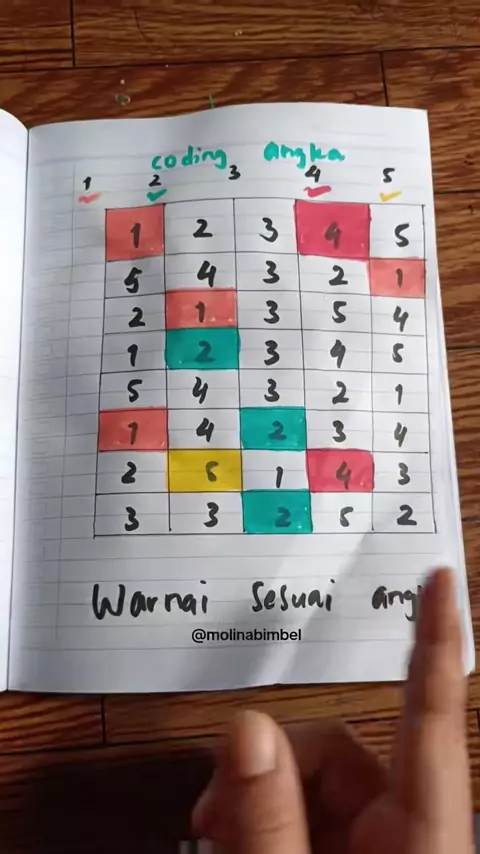 coding angka
1 2 3 4 5
1 2 3 4 5
5 4 3 2 1
2 1 3 5 4
1 2 3 4 5
5 4 3 2 1
1 4 2 3 4
2 5 1 4 3
3 3 2 5 2
Warnai Sesuai
@molinabimbel